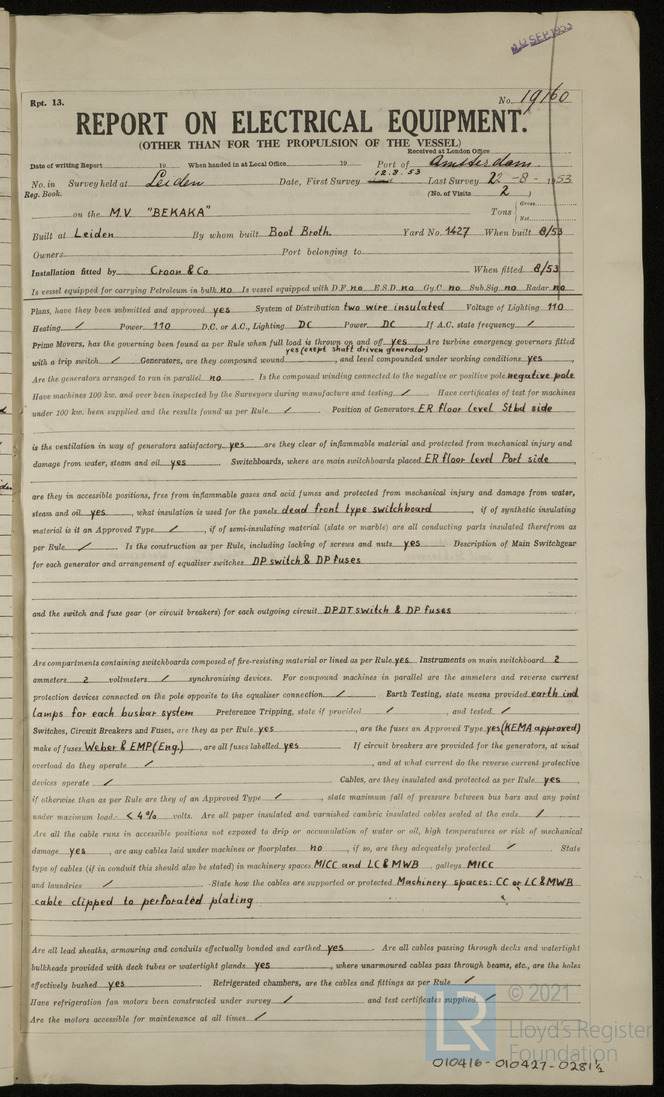 SEP 1953
Rpt. 13.
No. 19160
REPORT ON ELECTRICAL EQUIPMENT.
(OTHER THAN FOR THE PROPULSION OF THE VESSEL)
Received at London Office
Date of writing Report 19 When handed in at Local Office 19 Port of Amsterdam.
No. in Survey held at Leiden Date, First Survey 12.3.53 Last Survey 22-8-1953
Reg. Book. (No. of Visits 2 )
on the M.V "BEKAKA" Tons { Gross Net
Built at Leiden By whom built Boot Broth. Yard No. 1427 When built 8/53
Owners Port belonging to
Installation fitted by Croon & Co When fitted 8/53
Is vessel equipped for carrying Petroleum in bulk no Is vessel equipped with D.F. no E.S.D. no Gy.C. no Sub.Sig. no Radar no
Plans, have they been submitted and approved yes System of Distribution two wire insulated Voltage of Lighting 110
Heating / Power 110 D.C. or A.C., Lighting DC Power DC If A.C. state frequency /
Prime Movers, has the governing been found as per Rule when full load is thrown on and off yes Are turbine emergency governors fitted
with a trip switch / Generators, are they compound wound yes (except shaft driven generator), and level compounded under working conditions yes,
Are the generators arranged to run in parallel no Is the compound winding connected to the negative or positive pole negative pole
Have machines 100 kw. and over been inspected by the Surveyors during manufacture and testing / Have certificates of test for machines
under 100 kw. been supplied and the results found as per Rule / Position of Generators ER floor level Stbd side
is the ventilation in way of generators satisfactory yes are they clear of inflammable material and protected from mechanical injury and
damage from water, steam and oil yes Switchboards, where are main switchboards placed ER floor level Port side,
are they in accessible positions, free from inflammable gases and acid fumes and protected from mechanical injury and damage from water,
steam and oil yes, what insulation is used for the panels dead front type switchboard, if of synthetic insulating
material is it an Approved Type /, if of semi-insulating material (slate or marble) are all conducting parts insulated therefrom as
per Rule / Is the construction as per Rule, including locking of screws and nuts yes Description of Main Switchgear
for each generator and arrangement of equaliser switches DP switch & DP fuses
and the switch and fuse gear (or circuit breakers) for each outgoing circuit DPDT switch & DP fuses
Are compartments containing switchboards composed of fire-resisting material or lined as per Rule yes Instruments on main switchboard 2
ammeters 2 voltmeters / synchronising devices. For compound machines in parallel are the ammeters and reverse current
protection devices connected on the pole opposite to the equaliser connection / Earth Testing, state means provided earth ind
lamps for each busbar system Preference Tripping, state if provided /, and tested /
Switches, Circuit Breakers and Fuses, are they as per Rule yes, are the fuses an Approved Type yes (KEMA approved)
make of fuses Weber & EMP (Eng.), are all fuses labelled yes If circuit breakers are provided for the generators, at what
overload do they operate /, and at what current do the reverse current protective
devices operate / Cables, are they insulated and protected as per Rule yes,
if otherwise than as per Rule are they of an Approved Type /, state maximum fall of pressure between bus bars and any point
under maximum load <4% volts. Are all paper insulated and varnished cambric insulated cables sealed at the ends /
Are all the cable runs in accessible positions not exposed to drip or accumulation of water or oil, high temperatures or risk of mechanical
damage yes, are any cables laid under machines or floorplates no, if so, are they adequately protected / State
type of cables (if in conduit this should also be stated) in machinery spaces MICC and LC & MWB, galleys MICC
and laundries / State how the cables are supported or protected Machinery spaces: CC or LC & MWB
cable clipped to perforated plating
Are all lead sheaths, armouring and conduits effectually bonded and earthed yes Are all cables passing through decks and watertight
bulkheads provided with deck tubes or watertight glands yes, where unarmoured cables pass through beams, etc., are the holes
effectively bushed yes Refrigerated chambers, are the cables and fittings as per Rule /
Have refrigeration fan motors been constructed under survey / and test certificates supplied /
Are the motors accessible for maintenance at all times /
LR
© 2021
Lloyd's Register
Foundation
010416-010427-0281½